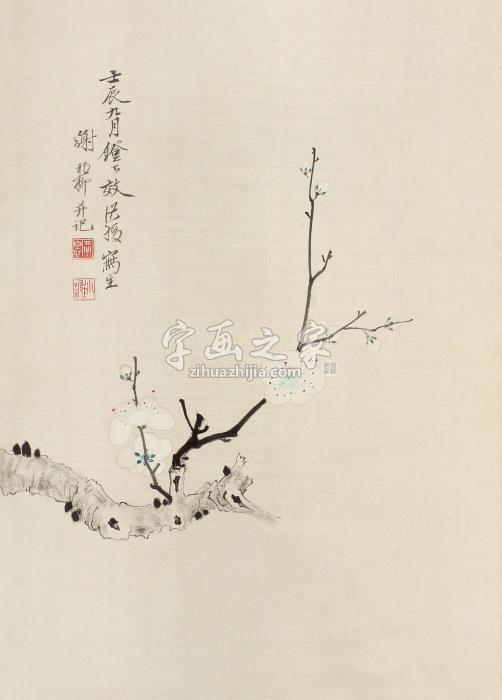 壬辰九月鐙下效洪授寫生
謝稚柳并記
字画之家
zihuazhijia.com